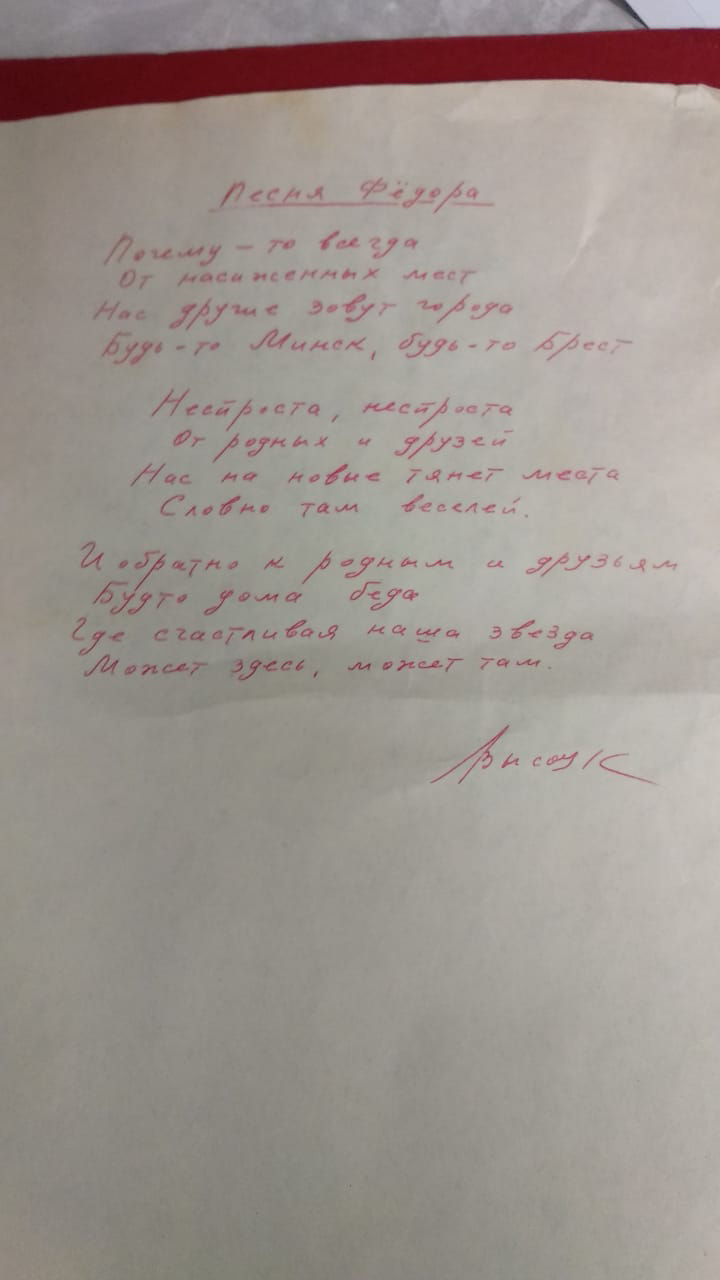 Песня Фёдора
Почему-то всегда
От насиженных мест
Нас другие зовут города
Будь-то Минск, будь-то Брест
Неспроста, неспроста
От родных и друзей
Нас на новые тянет места
Словно там веселей.
И обратно к родным и друзьям
Будто дома беда
Где счастливая наша звезда
Может здесь, может там.